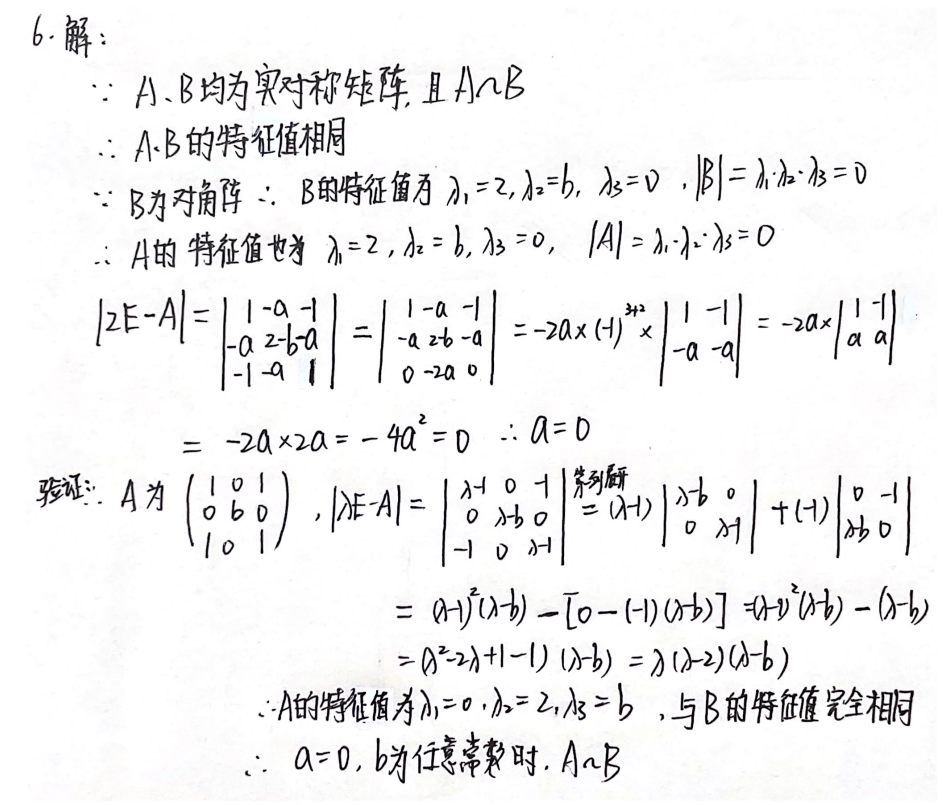 6. 解：
∵ A、B均为实对称矩阵，且A∽B
∴ A、B的特征值相同
∵ B为对角阵 ∴ B的特征值为 λ₁=2, λ₂=b, λ₃=0 , |B|=λ₁·λ₂·λ₃=0
∴ A的特征值也为 λ₁=2, λ₂=b, λ₃=0, |A|=λ₁·λ₂·λ₃=0
|2E-A| = |1 -a -1; -a 2-b -a; -1 -a 1| = |1 -a -1; -a 2-b -a; 0 -2a 0| = -2a×(-1)³⁺²× |1 -1; -a -a| = -2a× |1 -1; a a|
= -2a×2a = -4a² = 0 ∴ a=0
验证: A为 (1 0 1; 0 b 0; 1 0 1) , |λE-A| = |λ-1 0 -1; 0 λ-b 0; -1 0 λ-1| = (λ-1) |λ-b 0; 0 λ-1| + (-1) |0 -1; λ-b 0|
= (λ-1)²(λ-b) - [0-(-1)(λ-b)] = (λ-1)²(λ-b) - (λ-b)
= (λ²-2λ+1-1)(λ-b) = λ(λ-2)(λ-b)
∴ A的特征值为λ₁=0, λ₂=2, λ₃=b , 与B的特征值完全相同
∴ a=0, b为任意常数时, A∽B